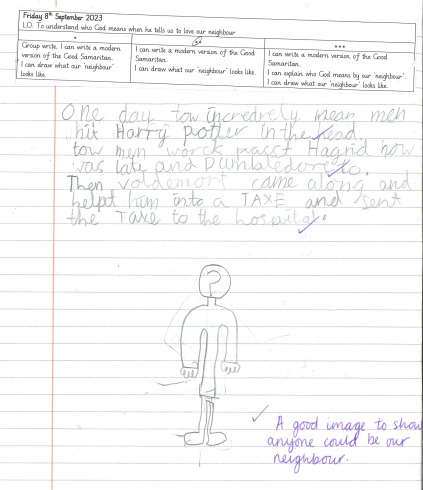 Friday 8th September 2023
LO: To understand who God means when he tells us to love our neighbour
*
**
***
Group write, I can write a modern
version of the Good Samaritan.
I can draw what our 'neighbour'
looks like.
I can write a modern version of the Good
Samaritan.
I can draw what our 'neighbour' looks like.
I can write a modern version of the Good
Samaritan.
I can explain who God means by our 'neighbour'.
I can draw what our 'neighbour' looks like.
One day tow increderely mean men
hit Harry potter in the head.
tow men worck passt Hagrid how
was late and Dumbledore to.
Then voldemort came along and
helpt ham into a TAXE and sent
the TAXE to the hospital.
?
A good image to show
anyone could be our
neighbour.